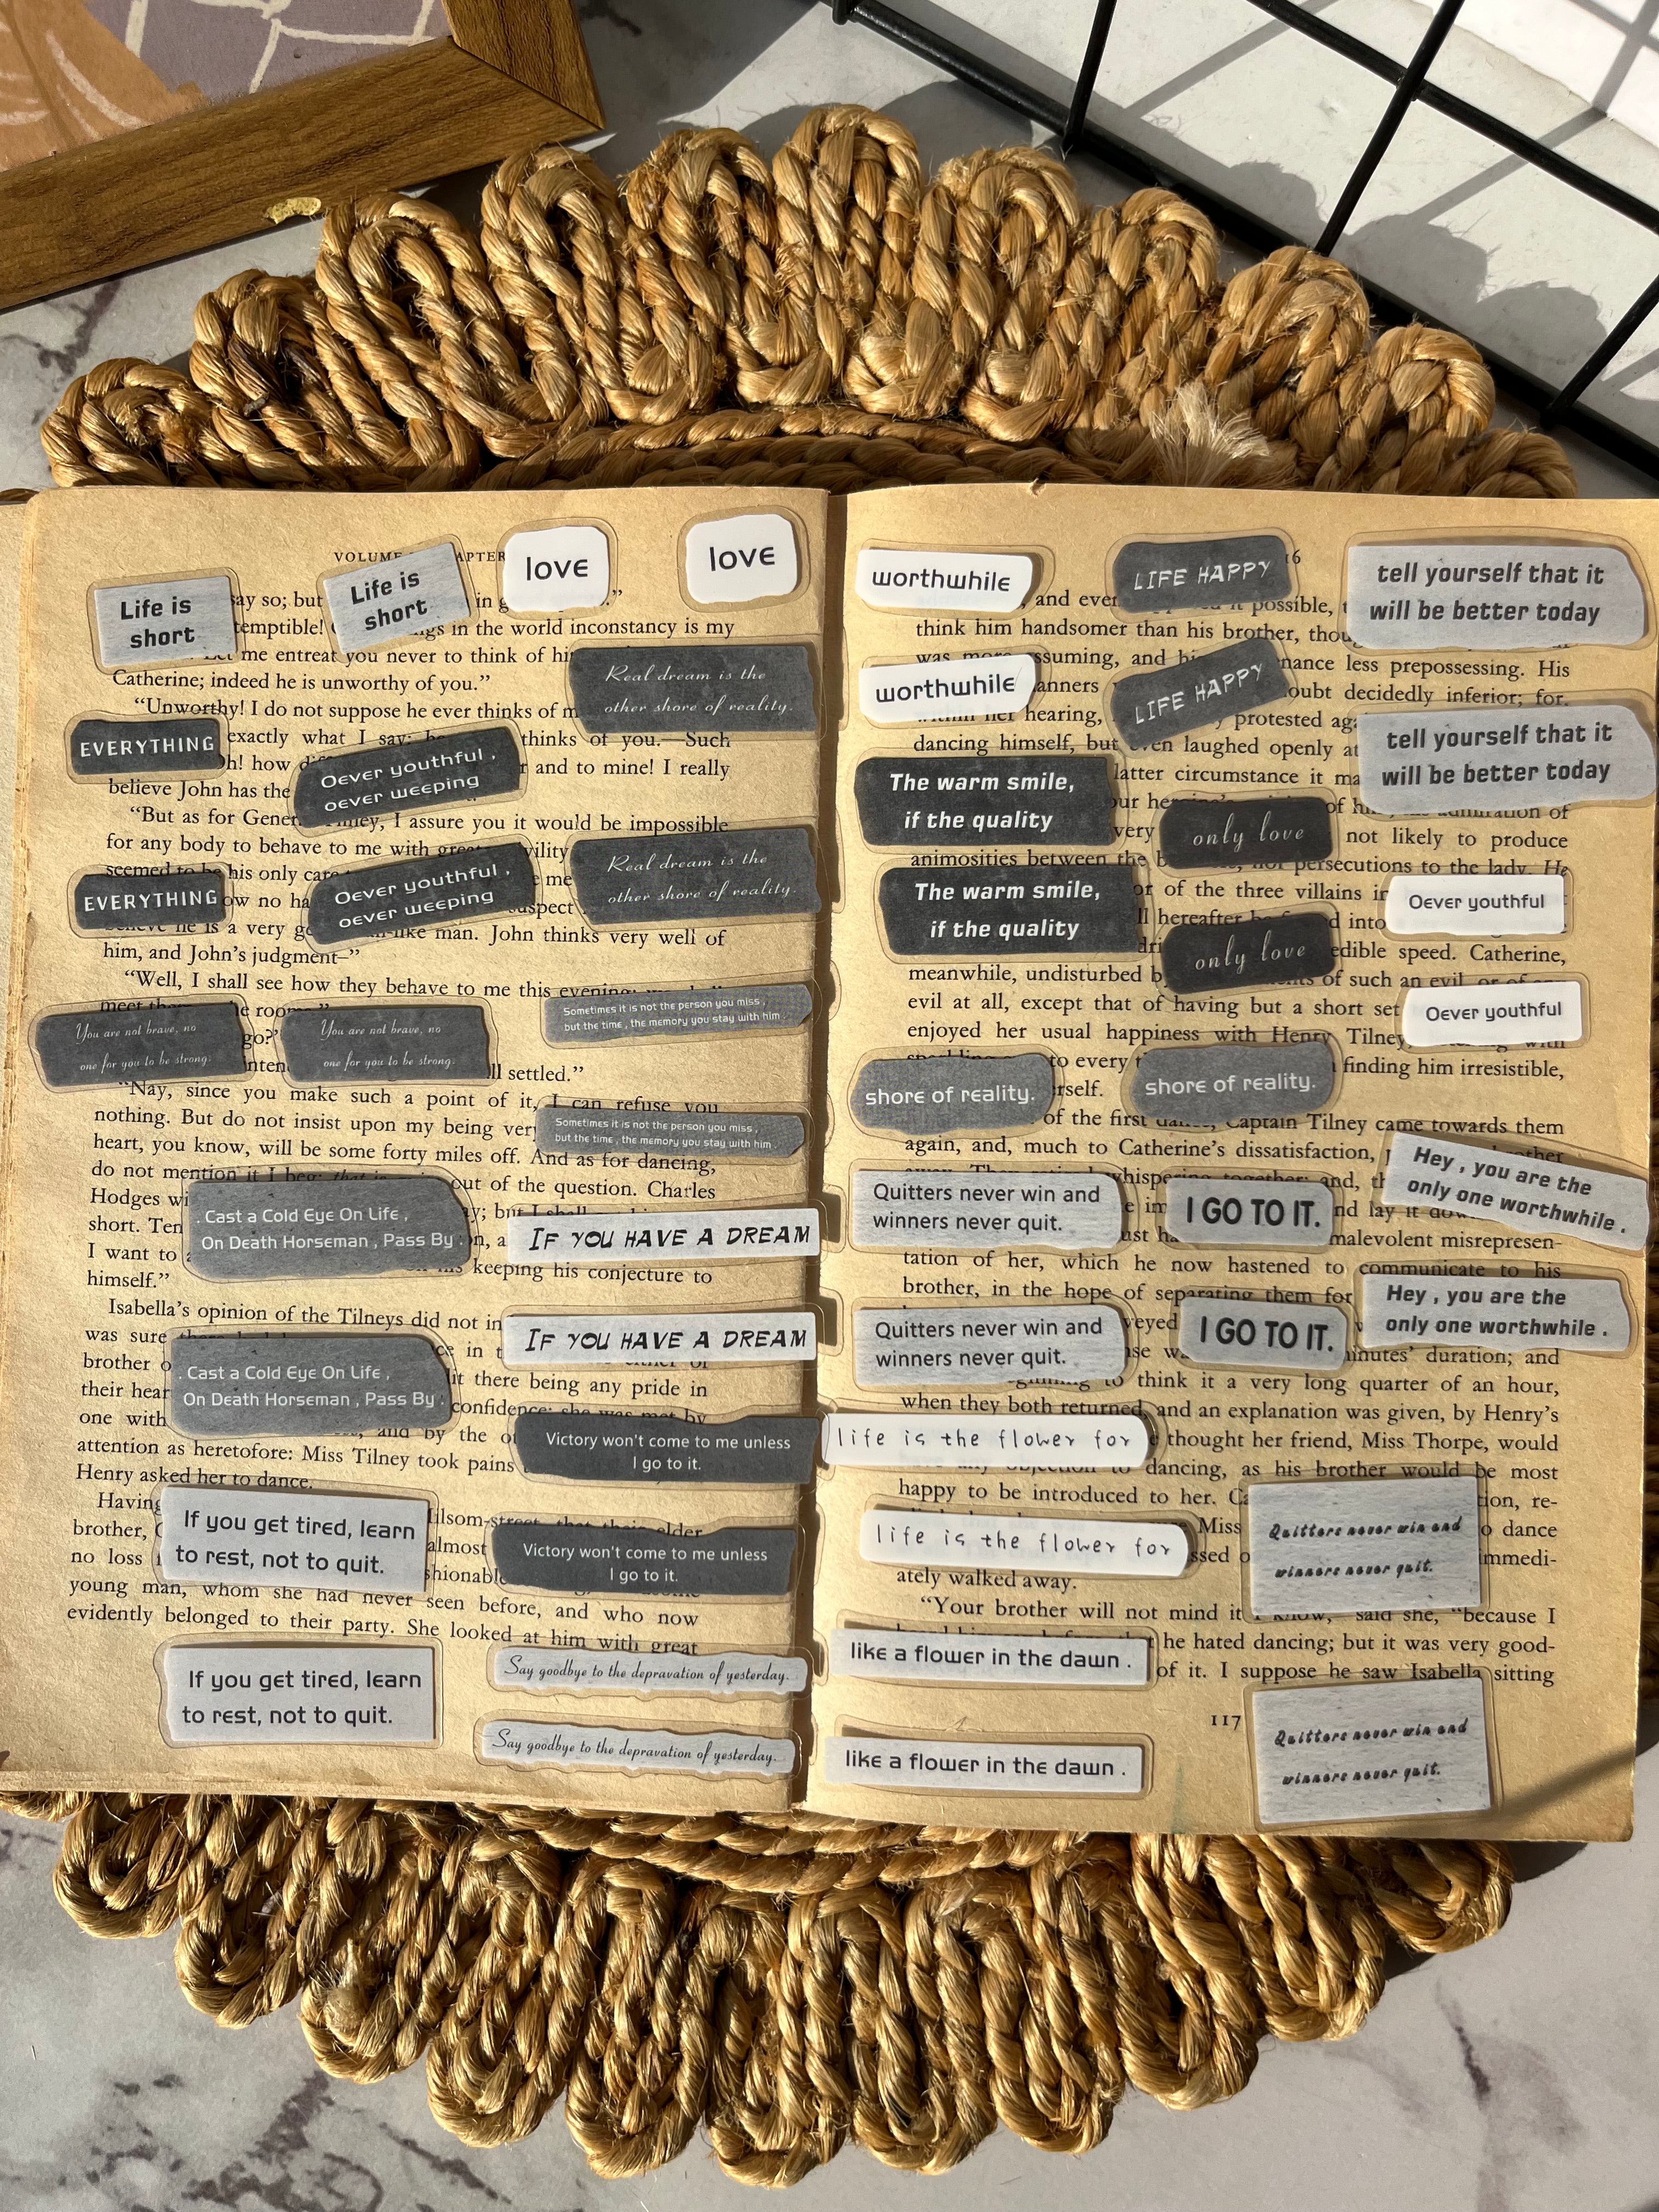 VOLUME
love
love
Life is
short
Life is
short
say so; but
temptible!
in the world inconstancy is my
me entreat you never to think of
Catherine; indeed he is unworthy of you.”
Real dream is the
other shore of reality.
“Unworthy! I do not suppose he ever thinks of
EVERYTHING
exactly what I say;
thinks of you.—Such
how
and to mine! I really
Oever youthful ,
oever weeping
believe John has the
“But as for
I assure you it would be impossible
for any body to behave to me with
Real dream is the
other shore of reality.
seemed to be his only care
EVERYTHING
Oever youthful ,
oever weeping
believe he is a very
man. John thinks very well of
him, and John’s judgment–”
“Well, I shall see how they behave to me this evening;
Sometimes it is not the person you miss ,
but the time , the memory you stay with him .
You are not brave, no
one for you to be strong.
You are not brave, no
one for you to be strong.
go?”
settled.”
“Nay, since you make such a point of it, I can refuse you
nothing. But do not insist upon my being
Sometimes it is not the person you miss ,
but the time , the memory you stay with him .
heart, you know, will be some forty miles off. And as for dancing,
do not mention it I beg; that is
out of the question. Charles
Hodges
. Cast a Cold Eye On Life ,
On Death Horseman , Pass By .
short. Ten
IF YOU HAVE A DREAM
I want to
keeping his conjecture to
himself.”
Isabella’s opinion of the Tilneys did not
was sure
IF YOU HAVE A DREAM
brother
there being any pride in
. Cast a Cold Eye On Life ,
On Death Horseman , Pass By .
their
one with
confidence: she was met by
and by the
attention as heretofore: Miss Tilney took pains
Victory won't come to me unless
I go to it.
Henry asked her to dance.
Having
that their elder
brother,
almost
If you get tired, learn
to rest, not to quit.
no loss
Victory won't come to me unless
I go to it.
young man, whom she had never seen before, and who now
evidently belonged to their party. She looked at him with great
If you get tired, learn
to rest, not to quit.
Say goodbye to the depravation of yesterday.
Say goodbye to the depravation of yesterday.
worthwhile
LIFE HAPPY
tell yourself that it
will be better today
and
possible,
think him handsomer than his brother,
was more assuming, and
less prepossessing. His
worthwhile
LIFE HAPPY
decidedly inferior; for,
within her hearing,
protested
tell yourself that it
will be better today
dancing himself, but even laughed openly at
The warm smile,
if the quality
latter circumstance it
only love
admiration of
not likely to produce
animosities between the
persecutions to the lady. He
The warm smile,
if the quality
of the three villains in
Oever youthful
hereafter be
into
only love
speed. Catherine,
meanwhile, undisturbed
of such an evil, or of
evil at all, except that of having but a short set
Oever youthful
enjoyed her usual happiness with Henry Tilney,
with
to every
finding him irresistible,
shore of reality.
shore of reality.
of the first dance, Captain Tilney came towards them
again, and, much to Catherine’s dissatisfaction,
Hey , you are the
only one worthwhile .
whispering together; and,
Quitters never win and
winners never quit.
I GO TO IT.
and lay it
malevolent misrepresen-
tation of her, which he now hastened to communicate to his
brother, in the hope of separating them for
Hey , you are the
only one worthwhile .
Quitters never win and
winners never quit.
I GO TO IT.
minutes’ duration; and
to think it a very long quarter of an hour,
when they both returned, and an explanation was given, by Henry’s
life is the flower for
thought her friend, Miss Thorpe, would
any objection to dancing, as his brother would be most
happy to be introduced to her.
re-
Miss
dance
life is the flower for
Quitters never win and
winners never quit.
immedi-
ately walked away.
“Your brother will not mind it I know,” said she, “because I
he hated dancing; but it was very good-
like a flower in the dawn .
of it. I suppose he saw Isabella sitting
117
Quitters never win and
winners never quit.
like a flower in the dawn .